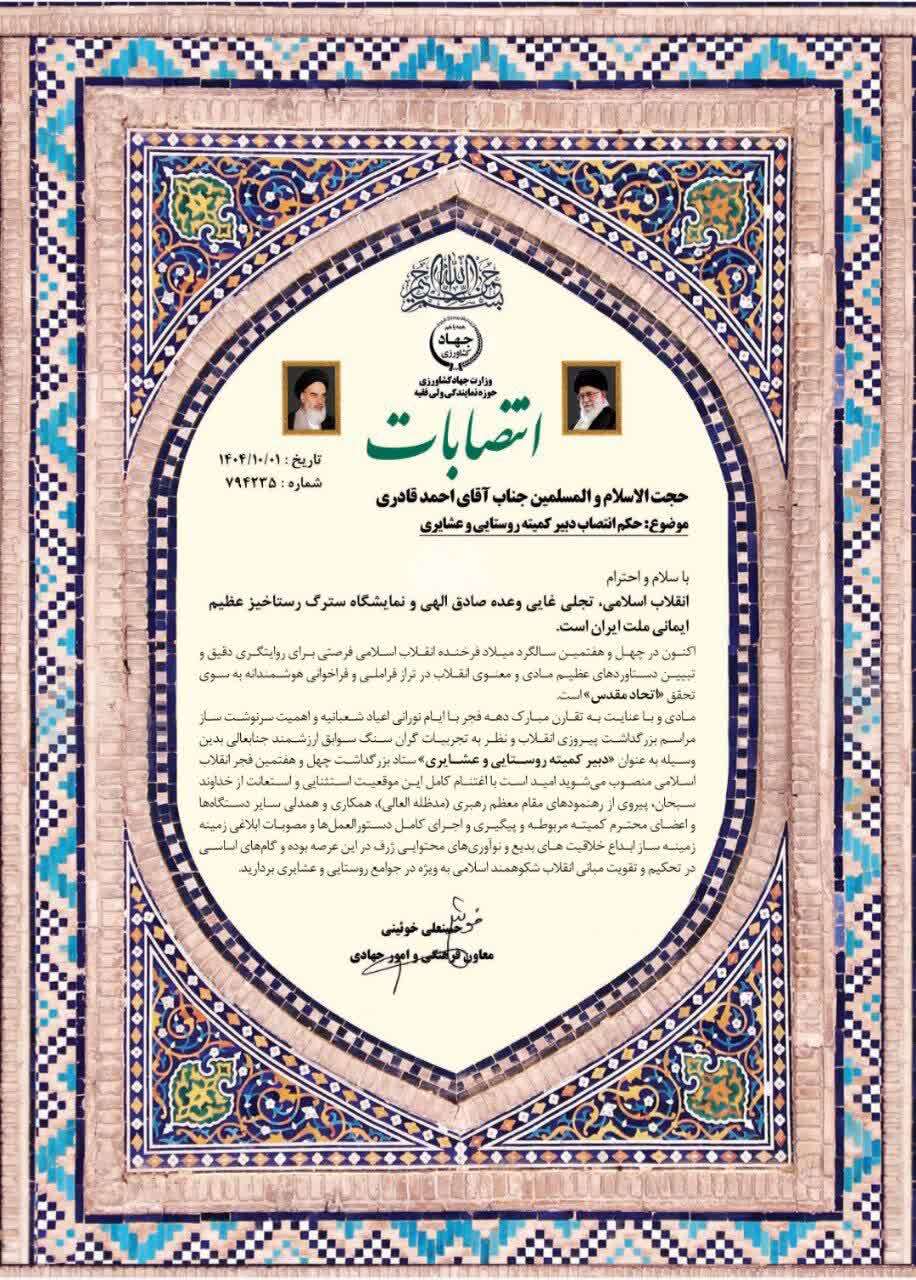 بسم الله الرحمن الرحیم
همه با هم
جهاد
کشاورزی
وزارت جهاد کشاورزی
حوزه نمایندگی ولی فقیه
انتصابات
تاریخ : ۱۴۰۴/۱۰/۰۱
شماره : ۷۹۴۲۳۵
حجت الاسلام و المسلمین جناب آقای احمد قادری
موضوع: حکم انتصاب دبیر کمیته روستایی و عشایری
با سلام و احترام
انقلاب اسلامی، تجلی غایی وعده صادق الهی و نمایشگاه سترگ رستاخیز عظیم
ایمانی ملت ایران است.
اکنون در چهل و هفتمین سالگرد میلاد فرخنده انقلاب اسلامی فرصتی برای روایتگری دقیق و
تبیین دستاوردهای عظیم مادی و معنوی انقلاب در تراز فراملی و فراخوانی هوشمندانه به سوی
تحقق «اتحاد مقدس» است.
مادی و با عنایت به تقارن مبارک دهه فجر با ایام نورانی اعیاد شعبانیه و اهمیت سرنوشت ساز
مراسم بزرگداشت پیروزی انقلاب و نظر به تجربیات گران سنگ سوابق ارزشمند جنابعالی بدین
وسیله به عنوان «دبیر کمیته روستایی و عشایری» ستاد بزرگداشت چهل و هفتمین فجر انقلاب
اسلامی منصوب می‌شوید امید است با اغتنام کامل این موقعیت استثنایی و استعانت از خداوند
سبحان، پیروی از رهنمودهای مقام معظم رهبری (مدظله العالی)، همکاری و همدلی سایر دستگاه‌ها
و اعضای محترم کمیته مربوطه و پیگیری و اجرای کامل دستورالعمل‌ها و مصوبات ابلاغی زمینه
زمینه ساز ابداع خلاقیت های بدیع و نوآوری‌های محتوایی ژرف در این عرصه بوده و گام‌های اساسی
در تحکیم و تقویت مبانی انقلاب شکوهمند اسلامی به ویژه در جوامع روستایی و عشایری بردارید.
حسنعلی خوئینی
معاون فرهنگی و امور جهادی